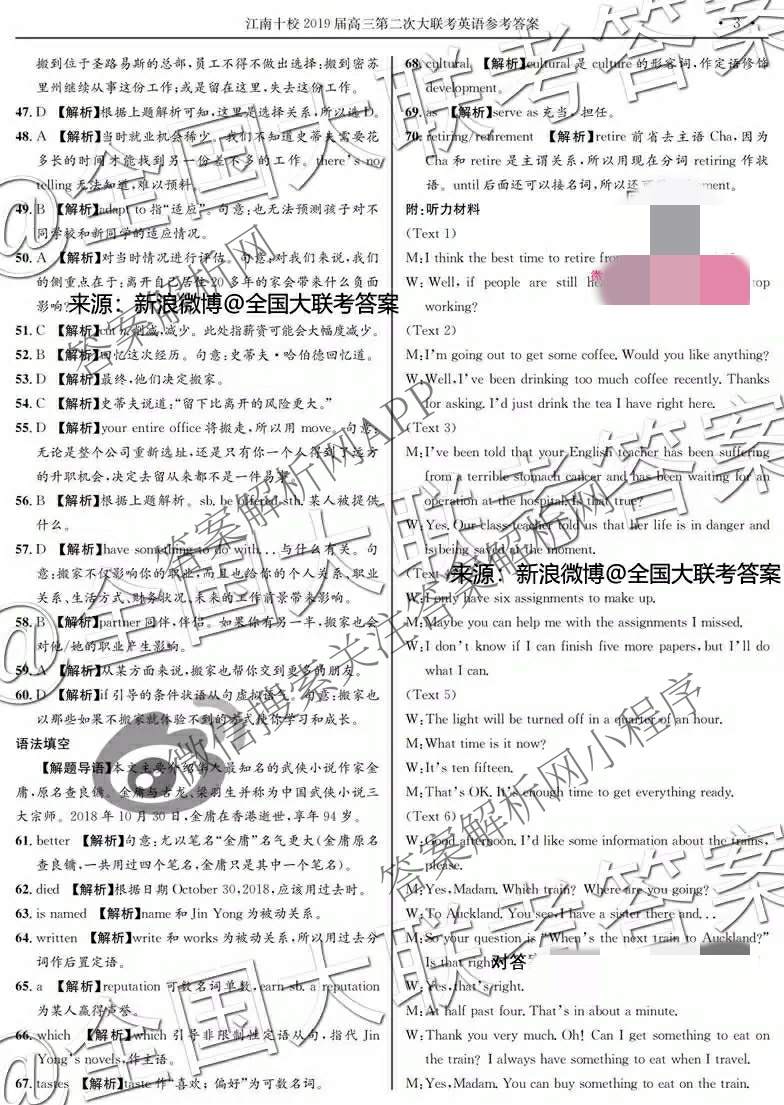 江南十校 2019 届高三第二次大联考英语参考答案
· 3 ·
搬到位于圣路易斯的总部,员工不得不做出选择;搬到密苏
里州继续从事这份工作;或是留在这里,失去这份工作。
47. D 【解析】根据上题解析可知,这里是选择关系,所以选D。
48. A 【解析】当时就业机会稀少,我们不知道史蒂夫需要花
多长的时间才能找到另一份差不多的工作。there's no
telling无法知道,难以预料。
49. B 【解析】adapt to指“适应”。句意:也无法预测孩子对不
同学校和新同学的适应情况。
50. A 【解析】对当时情况进行评估。句意:对我们来说,我们
的侧重点在于:离开自己居住20多年的家会带来什么负面
影响?
来源：新浪微博@全国大联考答案
51. C 【解析】cut in削减,减少。此处指薪资可能会大幅度减少。
52. B 【解析】回忆这次经历。句意:史蒂夫·哈伯德回忆道。
53. D 【解析】最终,他们决定搬家。
54. C 【解析】史蒂夫说道:“留下比离开的风险更大。”
55. D 【解析】your entire office将搬走,所以用move。句意:
无论是整个公司重新选址,还是只有你一个人得到了远方
的升职机会,决定去留从来都不是一件易事。
56. B 【解析】根据上题解析。sb. be offered sth. 某人被提供
什么。
57. D 【解析】have something to do with... 与什么有关。句
意:搬家不仅影响你的职业,而且也给你的个人关系、职业
关系、生活方式、财务状况、未来的工作前景带来影响。
58. B 【解析】partner同伴,伴侣。如果你有另一半,搬家也会
对他/她的职业产生影响。
59. A 【解析】从某方面来说,搬家也帮你交到更多的朋友。
60. D 【解析】if引导的条件状语从句虚拟语气。句意:搬家也
以那些如果不搬家就体验不到的方式使你学习和成长。
语法填空
【解题导语】本文主要介绍华人最知名的武侠小说作家金
庸,原名查良镛。金庸与古龙、梁羽生并称为中国武侠小说三
大宗师。2018年10月30日,金庸在香港逝世,享年94岁。
61. better 【解析】句意:尤以笔名“金庸”名气更大(金庸原名
查良镛,一共用过四个笔名,金庸只是其中一个笔名)。
62. died 【解析】根据日期October 30,2018,应该用过去时。
63. is named 【解析】name和Jin Yong为被动关系。
64. written 【解析】write和works为被动关系,所以用过去分
词作后置定语。
65. a 【解析】reputation可数名词单数,earn sb. a reputation
为某人赢得声誉。
66. which 【解析】which引导非限制性定语从句,指代Jin
Yong's novels,作主语。
67. tastes 【解析】taste作“喜欢;偏好”为可数名词。
68. cultural 【解析】cultural是culture的形容词,作定语修饰
development。
69. as 【解析】serve as充当,担任。
70. retiring/retirement 【解析】retire前省去主语Cha,因为
Cha和retire是主谓关系,所以用现在分词retiring作状
语。until后面还可以接名词,所以还
附:听力材料
(Text 1)
M:I think the best time to retire
W:Well,if people are still
working?
(Text 2)
M:I'm going out to get some coffee. Would you like anything?
W:Well,I've been drinking too much coffee recently. Thanks
for asking. I'd just drink the tea I have right here.
(Text 3)
M:I've been told that your English teacher has been suffering
from a terrible stomach cancer and has been waiting for an
operation at the hospital. Is that true?
W:Yes. Our class teacher told us that her life is in danger and
is being saved at the moment.
(Text
来源：新浪微博@全国大联考答案
W:I only have six assignments to make up.
M:Maybe you can help me with the assignments I missed.
W:I don't know if I can finish five more papers,but I'll do
what I can.
(Text 5)
W:The light will be turned off in a quarter of an hour.
M:What time is it now?
W:It's ten fifteen.
M:That's OK. It's enough time to get everything ready.
(Text 6)
W:Good afternoon. I'd like some information about the trains,
please.
M:Yes,Madam. Which train? Where are you going?
W:To Auckland. You see,I have a sister there and...
M:So your question is “When's the next train to Auckland?”
Is that right
对答
W:Yes,that's right.
M:At half past four. That's in about a minute.
W:Thank you very much. Oh! Can I get something to eat on
the train? I always have something to eat when I travel.
M:Yes,Madam. You can buy something to eat on the train.
@全国大联考答案
@全国大联考答案
答案解析网
答案解析网APP
微信搜索关注答案解析网
答案解析网小程序